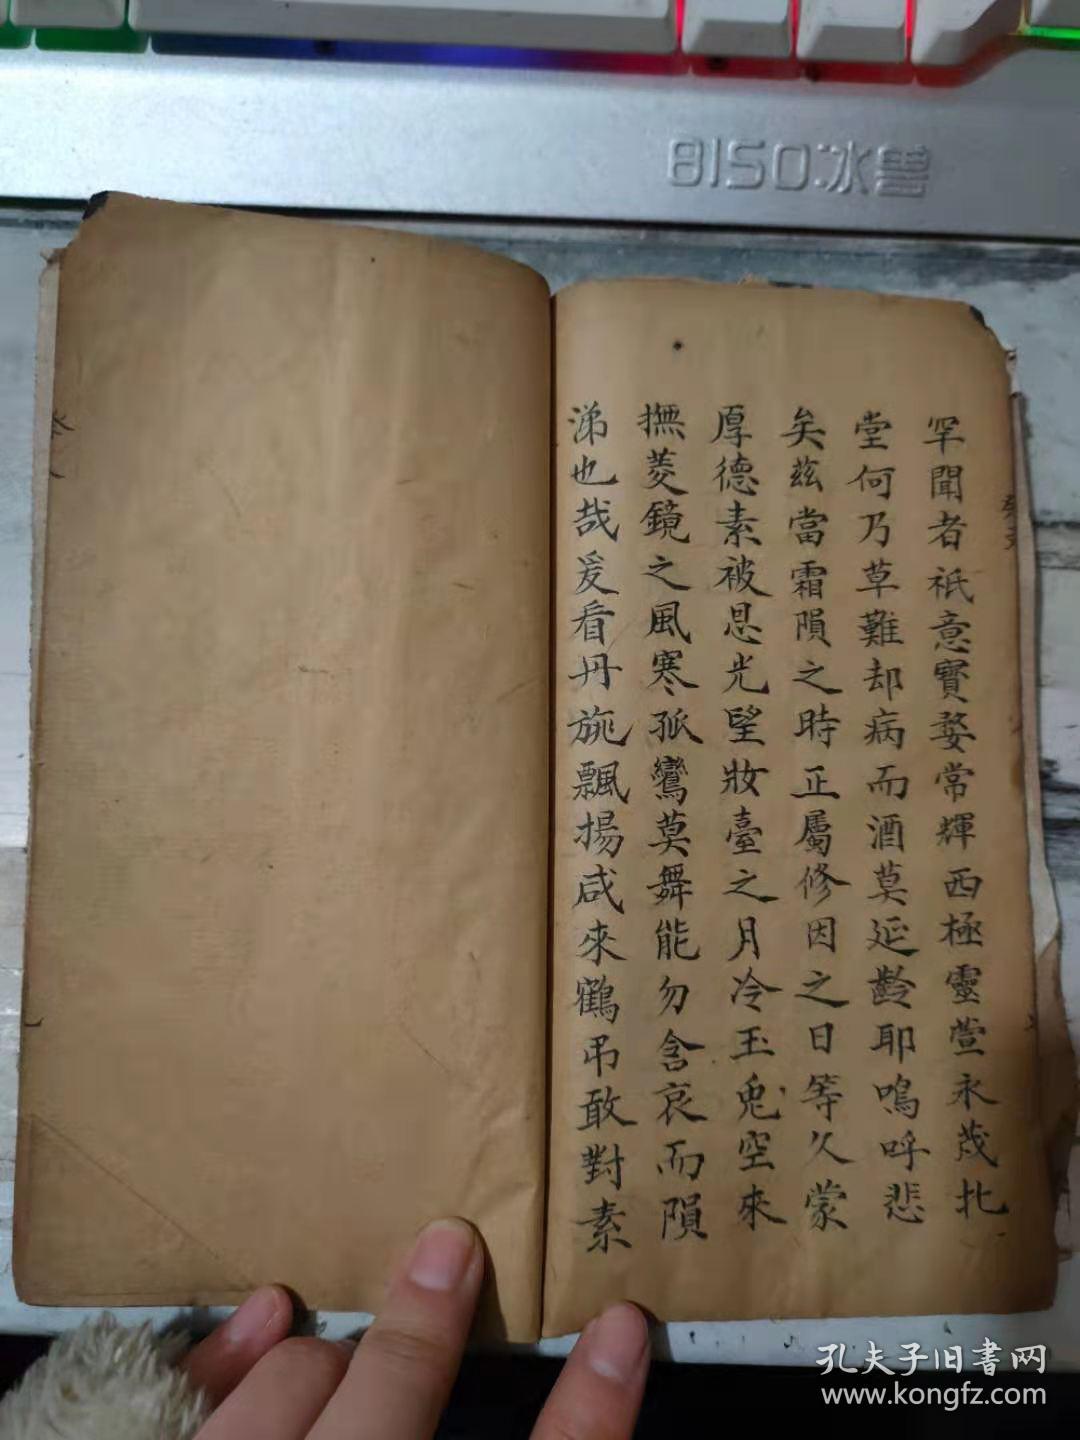 8150冰兽
罕聞者祇意寶婺常輝西極靈萱永茂北
堂何乃草難却病而酒莫延齡耶嗚呼悲
矣茲當霜隕之時正屬修因之日等久蒙
厚德素被恩光望妝臺之月冷玉兔空來
撫菱鏡之風寒孤鸞莫舞能勿含哀而隕
涕也哉爰看丹旐飄揚咸來鶴弔敢對素
孔夫子旧書网
www.kongfz.com